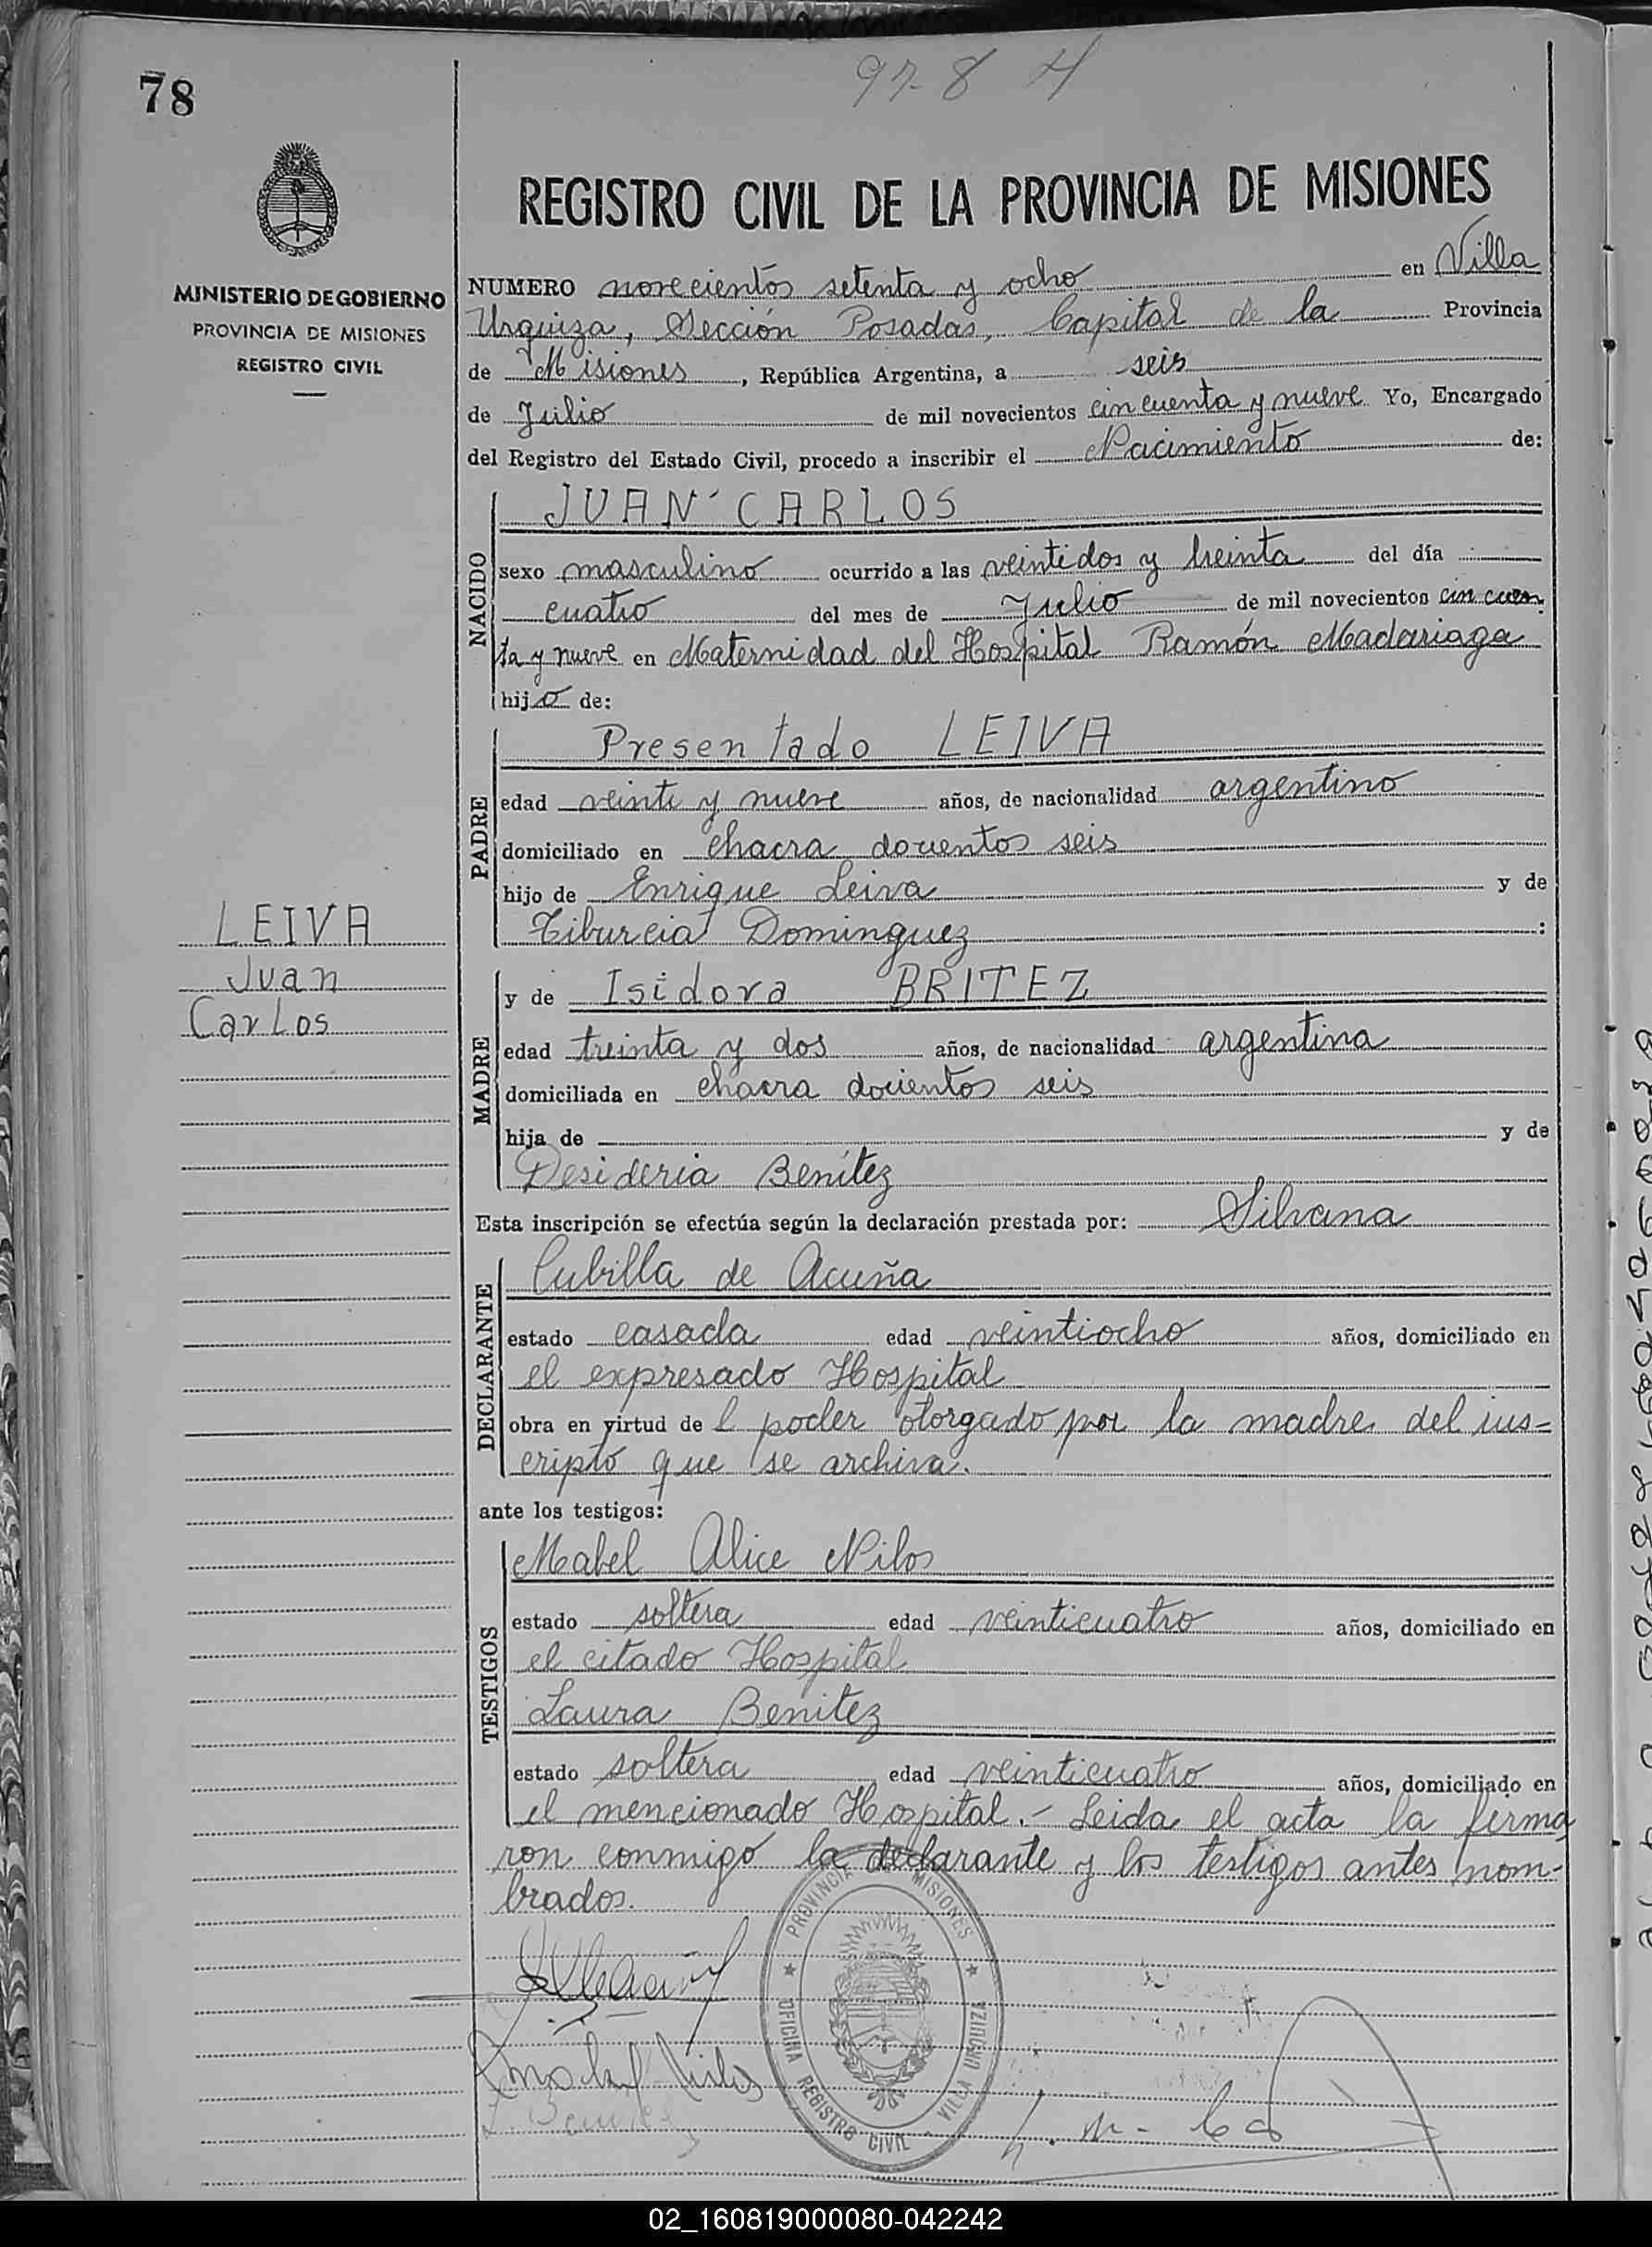 978 H
78
MINISTERIO DE GOBIERNO
PROVINCIA DE MISIONES
REGISTRO CIVIL
REGISTRO CIVIL DE LA PROVINCIA DE MISIONES
NUMERO novecientos setenta y ocho en Villa
Urquiza, Sección Posadas, Capital de la Provincia
de Misiones, República Argentina, a seis
de Julio de mil novecientos cincuenta y nueve Yo, Encargado
del Registro del Estado Civil, procedo a inscribir el Nacimiento de:
NACIDO
JUAN CARLOS
sexo masculino ocurrido a las veintidos y treinta del día
cuatro del mes de Julio de mil novecientos cincuen
ta y nueve en Maternidad del Hospital Ramón Madariaga
hijo de:
PADRE
Presentado LEIVA
edad veinte y nueve años, de nacionalidad argentino
domiciliado en chacra docientos seis
hijo de Enrique Leiva y de
Tiburcia Dominguez :
LEIVA
Juan
Carlos
MADRE
y de Isidora BRITEZ
edad treinta y dos años, de nacionalidad argentina
domiciliada en chacra docientos seis
hija de y de
Desideria Benítez
Esta inscripción se efectúa según la declaración prestada por: Silvana
DECLARANTE
Cubilla de Acuña
estado casada edad veintiocho años, domiciliado en
el expresado Hospital
obra en virtud de l poder otorgado por la madre del ins=
cripto que se archiva.
ante los testigos:
TESTIGOS
Mabel Alice Nilos
estado soltera edad veinticuatro años, domiciliado en
el citado Hospital
Laura Benitez
estado soltera edad veinticuatro años, domiciliado en
el mencionado Hospital.- Leida el acta la firma
ron conmigo la declarante y los testigos antes nom-
brados.
PROVINCIA MISIONES
OFICINA REGISTRO CIVIL VILLA URQUIZA
Mabel Nilos
L. Benitez
02_160819000080-042242